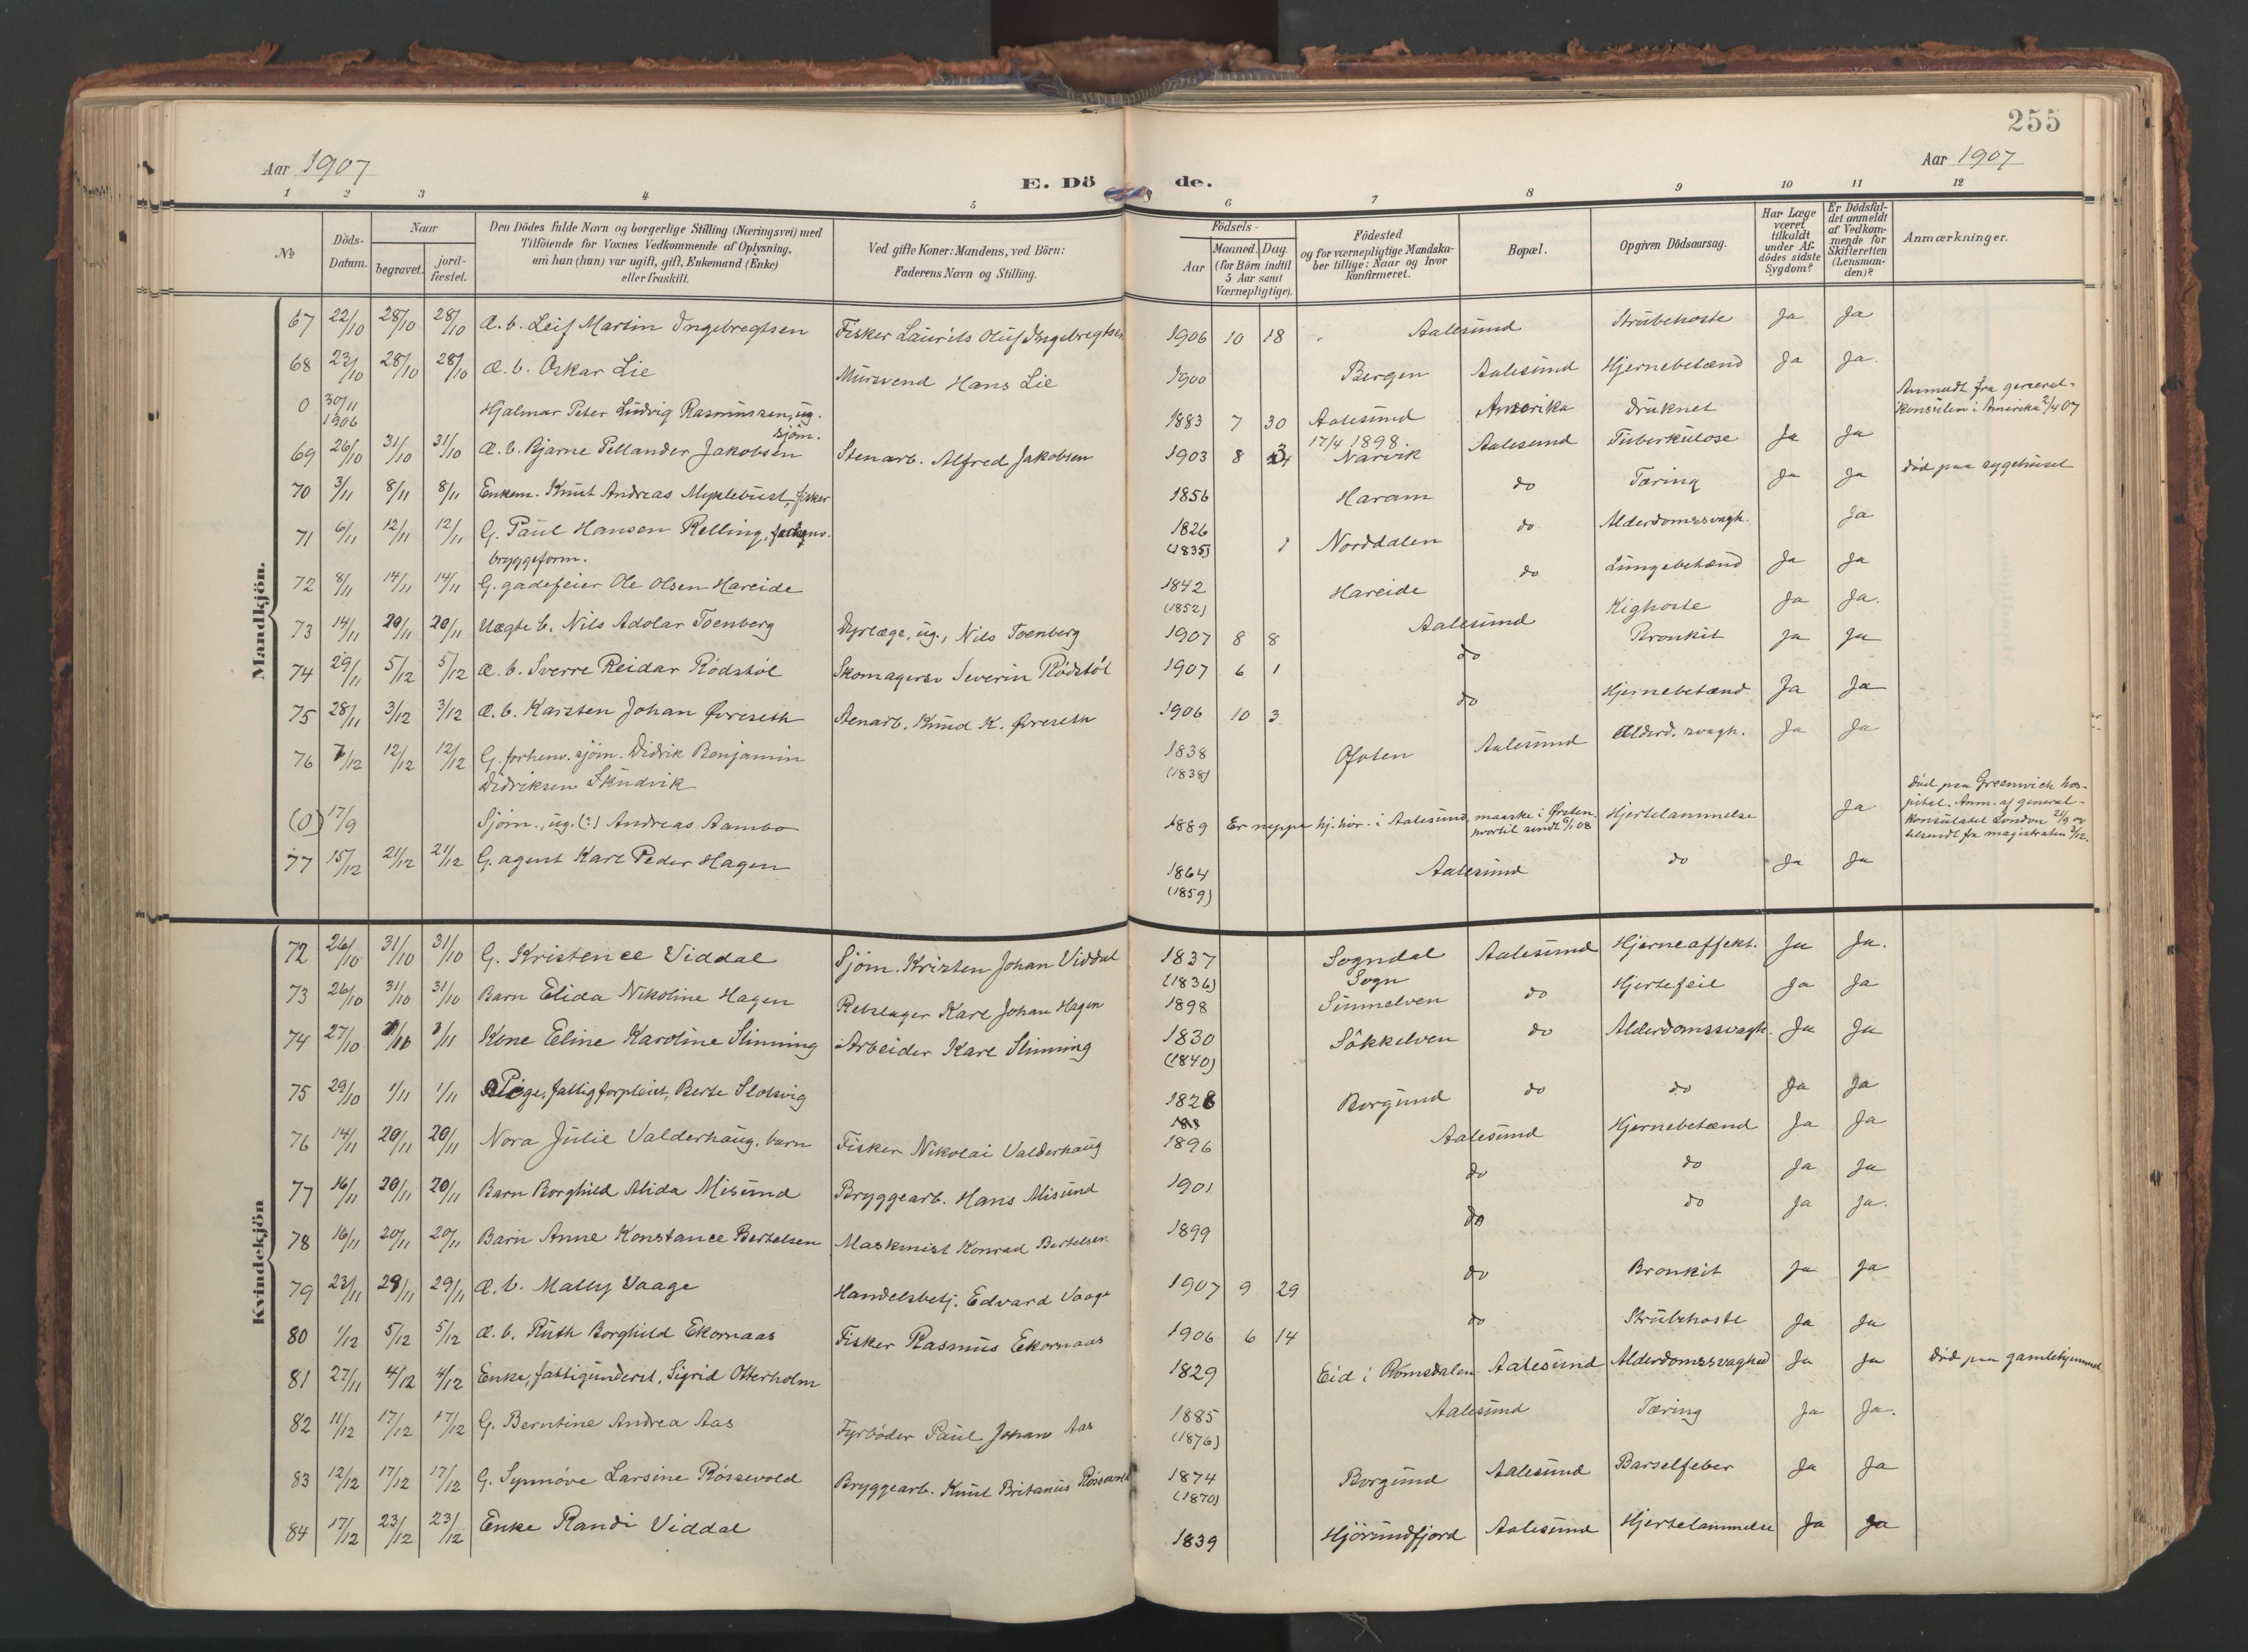 255
Aar 1907
Aar 1907
E. Dö de.
1 2 3 4 5 6 7 8 9 10 11 12
No
Döds-Datum.
Naar
begravet.
jord-fæstet.
Den Dödes fulde Navn og borgerlige Stilling (Næringsvei) med
Tilföiende for Voxnes Vedkommende af Oplysning,
om han (hun) var ugift, gift, Enkemand (Enke)
eller fraskilt.
Ved gifte Koner: Mandens, ved Börn:
Faderens Navn og Stilling.
Födsels-
Aar
Maaned. Dag.
(for Börn indtil
5 Aar samt
Værnepligtige).
Födested
og for værnepligtige Mandska-
ber tillige: Naar og hvor
konfirmeret.
Bopæl.
Opgiven Dödsaarsag.
Har Læge
været
tilkaldt
under Af-
dödes sidste
Sygdom?
Er Dödsfal-
det anmeldt
af Vedkom-
mende for
Skifteretten
(Lensman-
den)?
Anmærkninger.
Mandkjön.
67 22/10 28/10 28/10 Æ. b. Leif Martin Ingebregtsen Fisker Laurits Oluf Ingebregtsen 1906 10 18 Aalesund Strubehoste Ja Ja
68 23/10 28/10 28/10 Æ. b. Oskar Lie Mursvend Hans Lie 1900 Bergen Aalesund Hjernebetænd Ja Ja.
0 30/11 1906 Hjalmar Peter Ludvig Rasmussen, ug. sjöm. 1883 7 30 Aalesund 17/4 1898. Amerika druknet Anmeldt fra general-
konsulen i Amerika 2/4 07
69 26/10 31/10 31/10 Æ. b. Bjarne Pellander Jakobsen Stenarb. Alfred Jakobsen 1903 8 Narvik Aalesund Tuberkulose Ja Ja
70 3/11 8/11 8/11 Enkem. Knut Andreas Myklebust, fisker 1856 Haram do Tæring Ja Ja död paa sygehuset
71 6/11 12/11 12/11 G. Paul Hansen Relling, forhenv.
bryggeform. 1826 (1835) 1 Norddalen do Alderdomssvagh. Ja
72 8/11 14/11 14/11 G. gadefeier Ole Olsen Hareide 1842 (1852) Hareide do Lungebetænd Ja Ja
73 14/11 20/11 20/11 Uægte b. Nils Adolar Toenberg Dyrlæge, ug., Nils Toenberg 1907 8 8 Aalesund Kighoste Ja Ja.
74 29/11 5/12 5/12 Æ. b. Sverre Reidar Rödstöl Skomagersv Severin Rödstöl 1907 6 1 do Bronkit Ja Ja
75 28/11 3/12 3/12 Æ. b. Karsten Johan Øvreseth Stenarb. Knud K. Øvreseth 1906 10 3 do Hjernebetænd. Ja Ja
76 7/12 12/12 12/12 G. forhenv. sjöm. Didrik Benjamin
Didriksen Skudvik 1838 (1838) Ofoten Aalesund Alderd. svagh. Ja Ja
(0) 17/9 Sjöm., ug. (?) Andreas Aambo 1889 Er neppe hj. hör. i Aalesund, maaske i Örsten,
hvortil sendt 6/1 08 Hjertelammelse Ja död paa Greenwich hos-
pital. Anm. af general-
konsulatet London 21/9 og
tilsendt fra magistraten 7/12.
77 15/12 21/12 21/12 G. agent Karl Peder Hagen 1864 (1859) Aalesund do Ja Ja
Kvindekjön
72 26/10 31/10 31/10 G. Kristence Viddal Sjöm. Kristen Johan Viddal 1837 (1836) Sogndal Sogn Aalesund Hjerneaffekt. Ja Ja.
73 26/10 31/10 31/10 Barn Elida Nikoline Hagen Rebslager Karl Johan Hagen 1898 Sunnelven do Hjertefeil Ja Ja
74 27/10 1/11 Kone Eline Karoline Slinning Arbeider Karl Slinning 1830 (1840) Sökkelven do Alderdomssvagh. Ja Ja
75 29/10 1/11 1/11 Pige, fattigforpleiet, Berte Slotsvig 1828 Borgund do do Ja Ja
76 14/11 20/11 20/11 Nora Julie Valderhaug, barn Fisker Nikolai Valderhaug 1896 Aalesund Hjernebetænd Ja Ja
77 16/11 20/11 20/11 Barn Borghild Alida Misund Bryggearb. Hans Misund 1901 do do Ja Ja
78 16/11 20/11 20/11 Barn Anne Konstance Bertelsen Maskinist Konrad Bertelsen 1899 do do Ja Ja.
79 23/11 29/11 29/11 Æ. b. Mally Vaage Handelsbetj. Edvard Vaage 1907 9 29 do Bronkit Ja Ja
80 1/12 5/12 5/12 Æ. b. Ruth Borghild Ekornaas Fisker Rasmus Ekornaas 1906 6 14 do Strubehoste Ja Ja
81 27/11 4/12 4/12 Enke, fattigunderst, Sigrid Otterholm 1829 Eid i Romsdalen Aalesund Alderdomssvaghed Ja Ja död paa gamlehjemmet
82 11/12 17/12 17/12 G. Berntine Andrea Aas Fyrböder Paul Johan Aas 1885 (1876) Aalesund Tæring Ja Ja.
83 12/12 17/12 17/12 G. Synnöve Larsine Rössevold Bryggearb. Knut Britanus Rössevold 1874 (1870) Borgund Aalesund Barselfeber Ja Ja
84 17/12 23/12 23/12 Enke Randi Viddal 1839 Hjörundfjord Aalesund Hjertelammelse Ja Ja